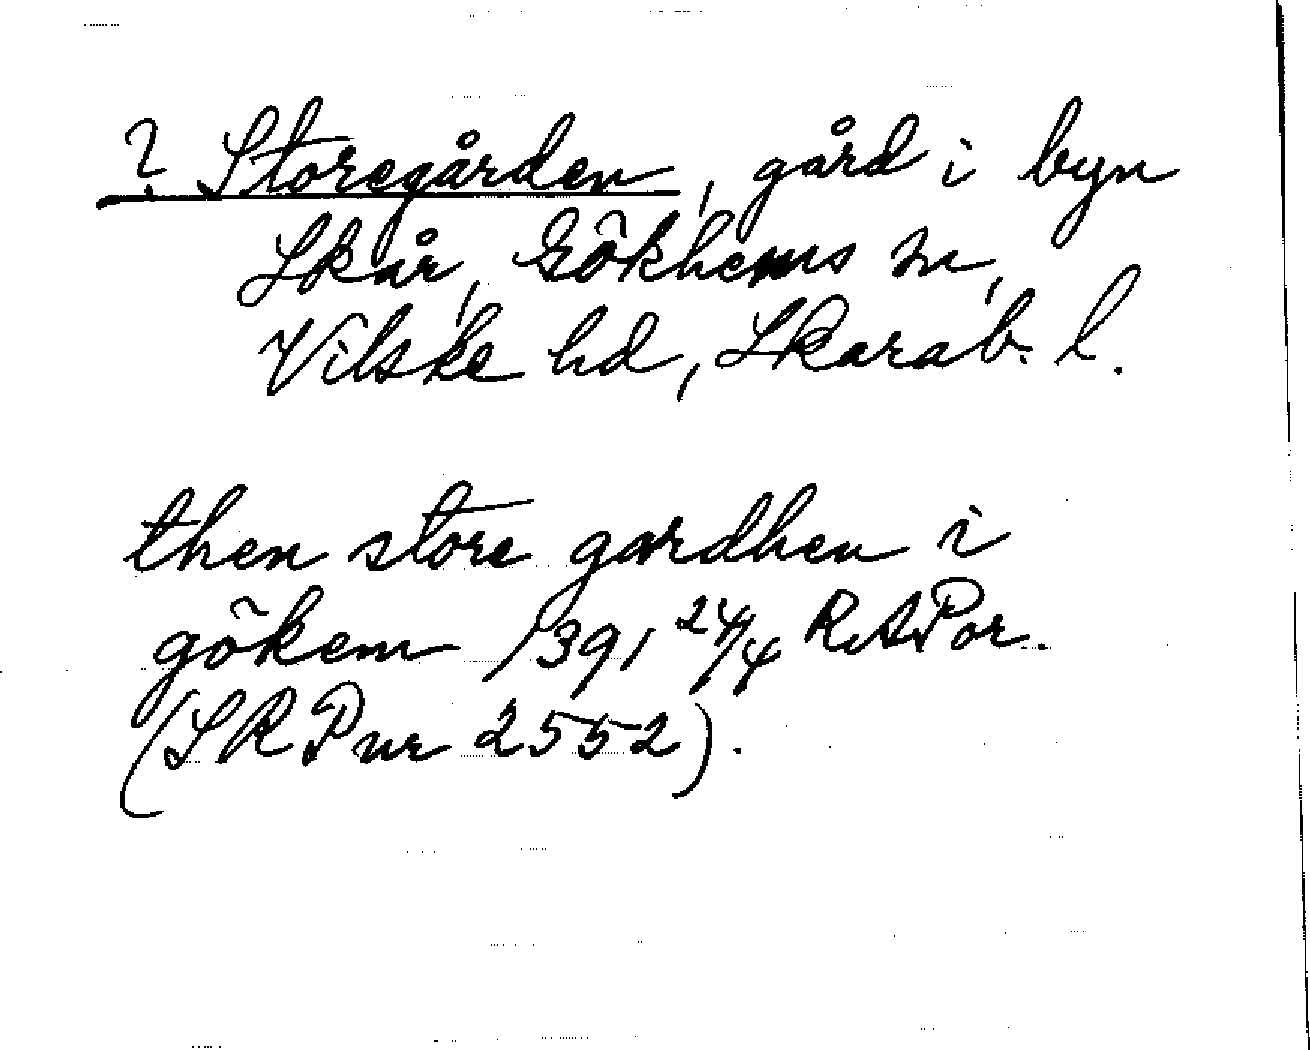 ? Storegården, gård i byn
Skår, Gökhems sn,
Vilske hd, Skarab. l.
then store gardhen i
gökem 1391 24/4 RAPor.
(SRPnr 2552).